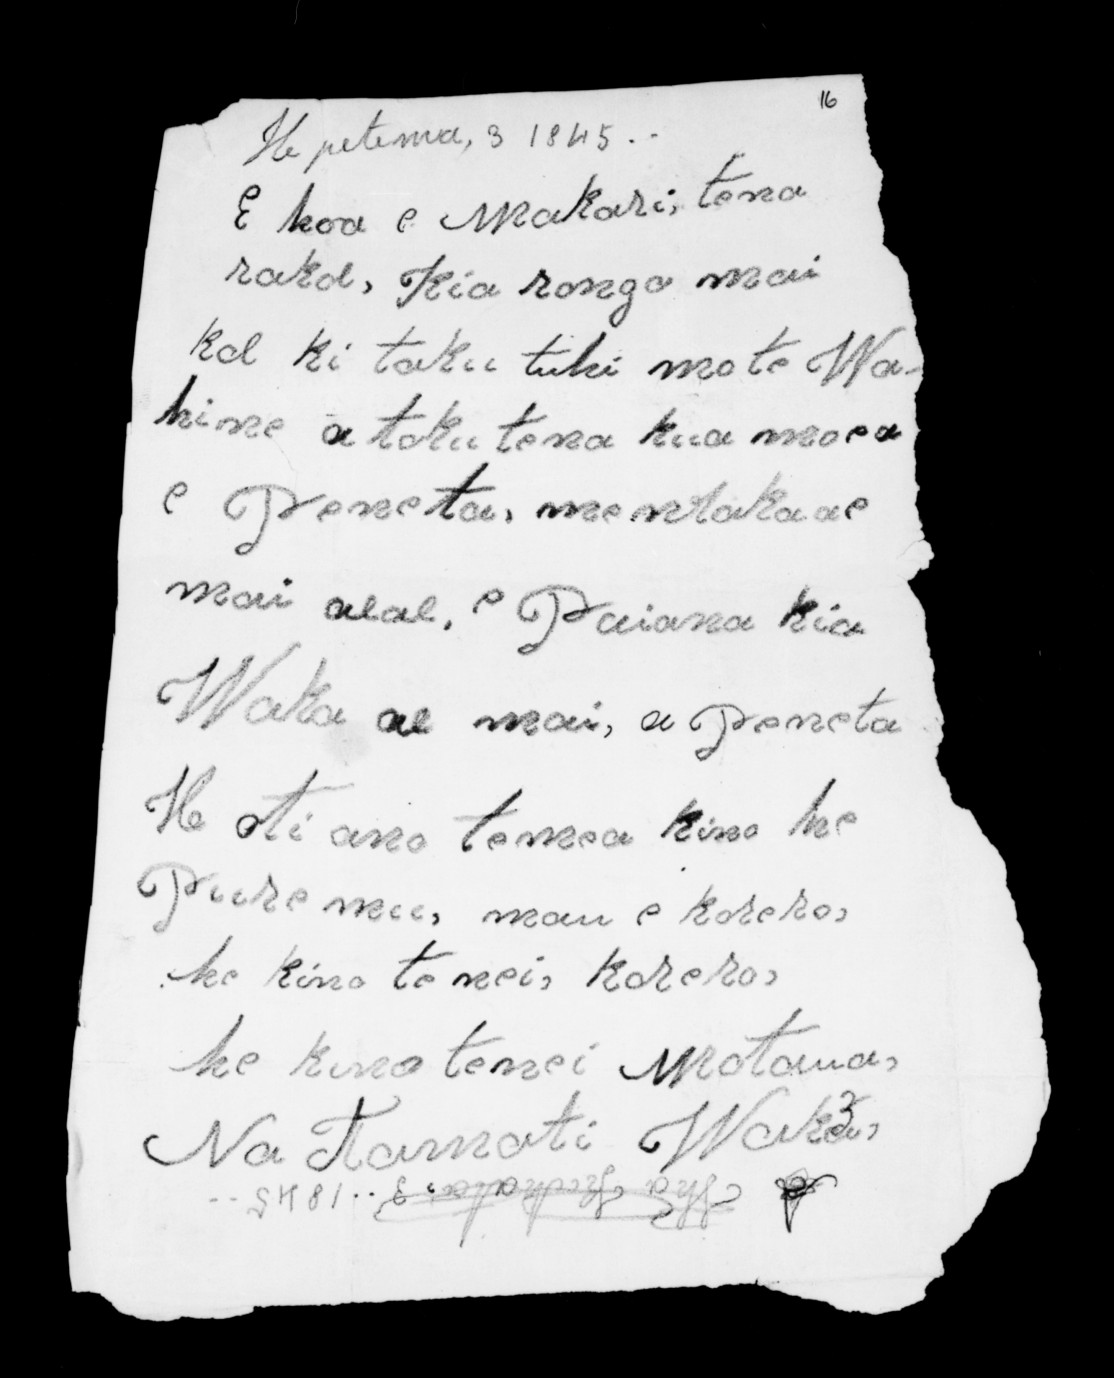 16
He petema, 3 1845..
E hoa e Makari; tena
rakd, Kia rongo mai
kd ki taku tuhi mo te Wa-
hine a taku tena kua moea
e Peneta, me
mai e Paiana kia
Waka ae mai, a Peneta
He oti ano temea kino he
Puremu, mau e korero,
he kino te nei, korero,
he kino tenei Mataua,
Na Tamati Waka,
3 .. 1845 ..